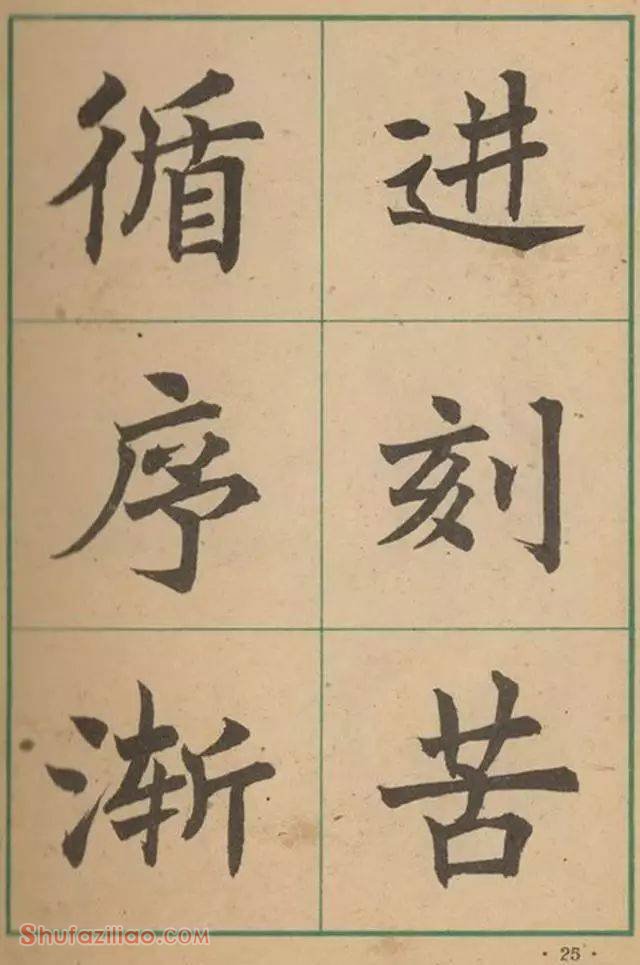 循序渐
进刻苦
Shufaziliao.com
· 25 ·